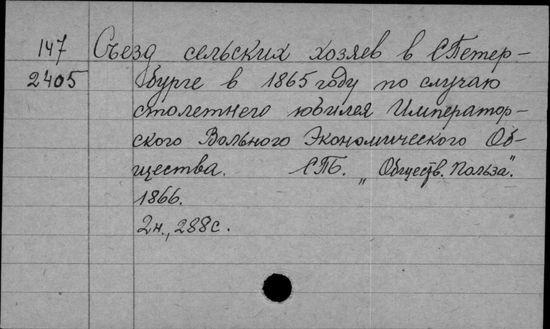 147 Съезд сельских хозяев в С Петер-
2405 бурге в 1865 году по случаю
столетнего юбилея Император-
ского Вольного Экономического Об-
щества. СПБ. „Обществ. Польза".
1866.
2н., 288 с.